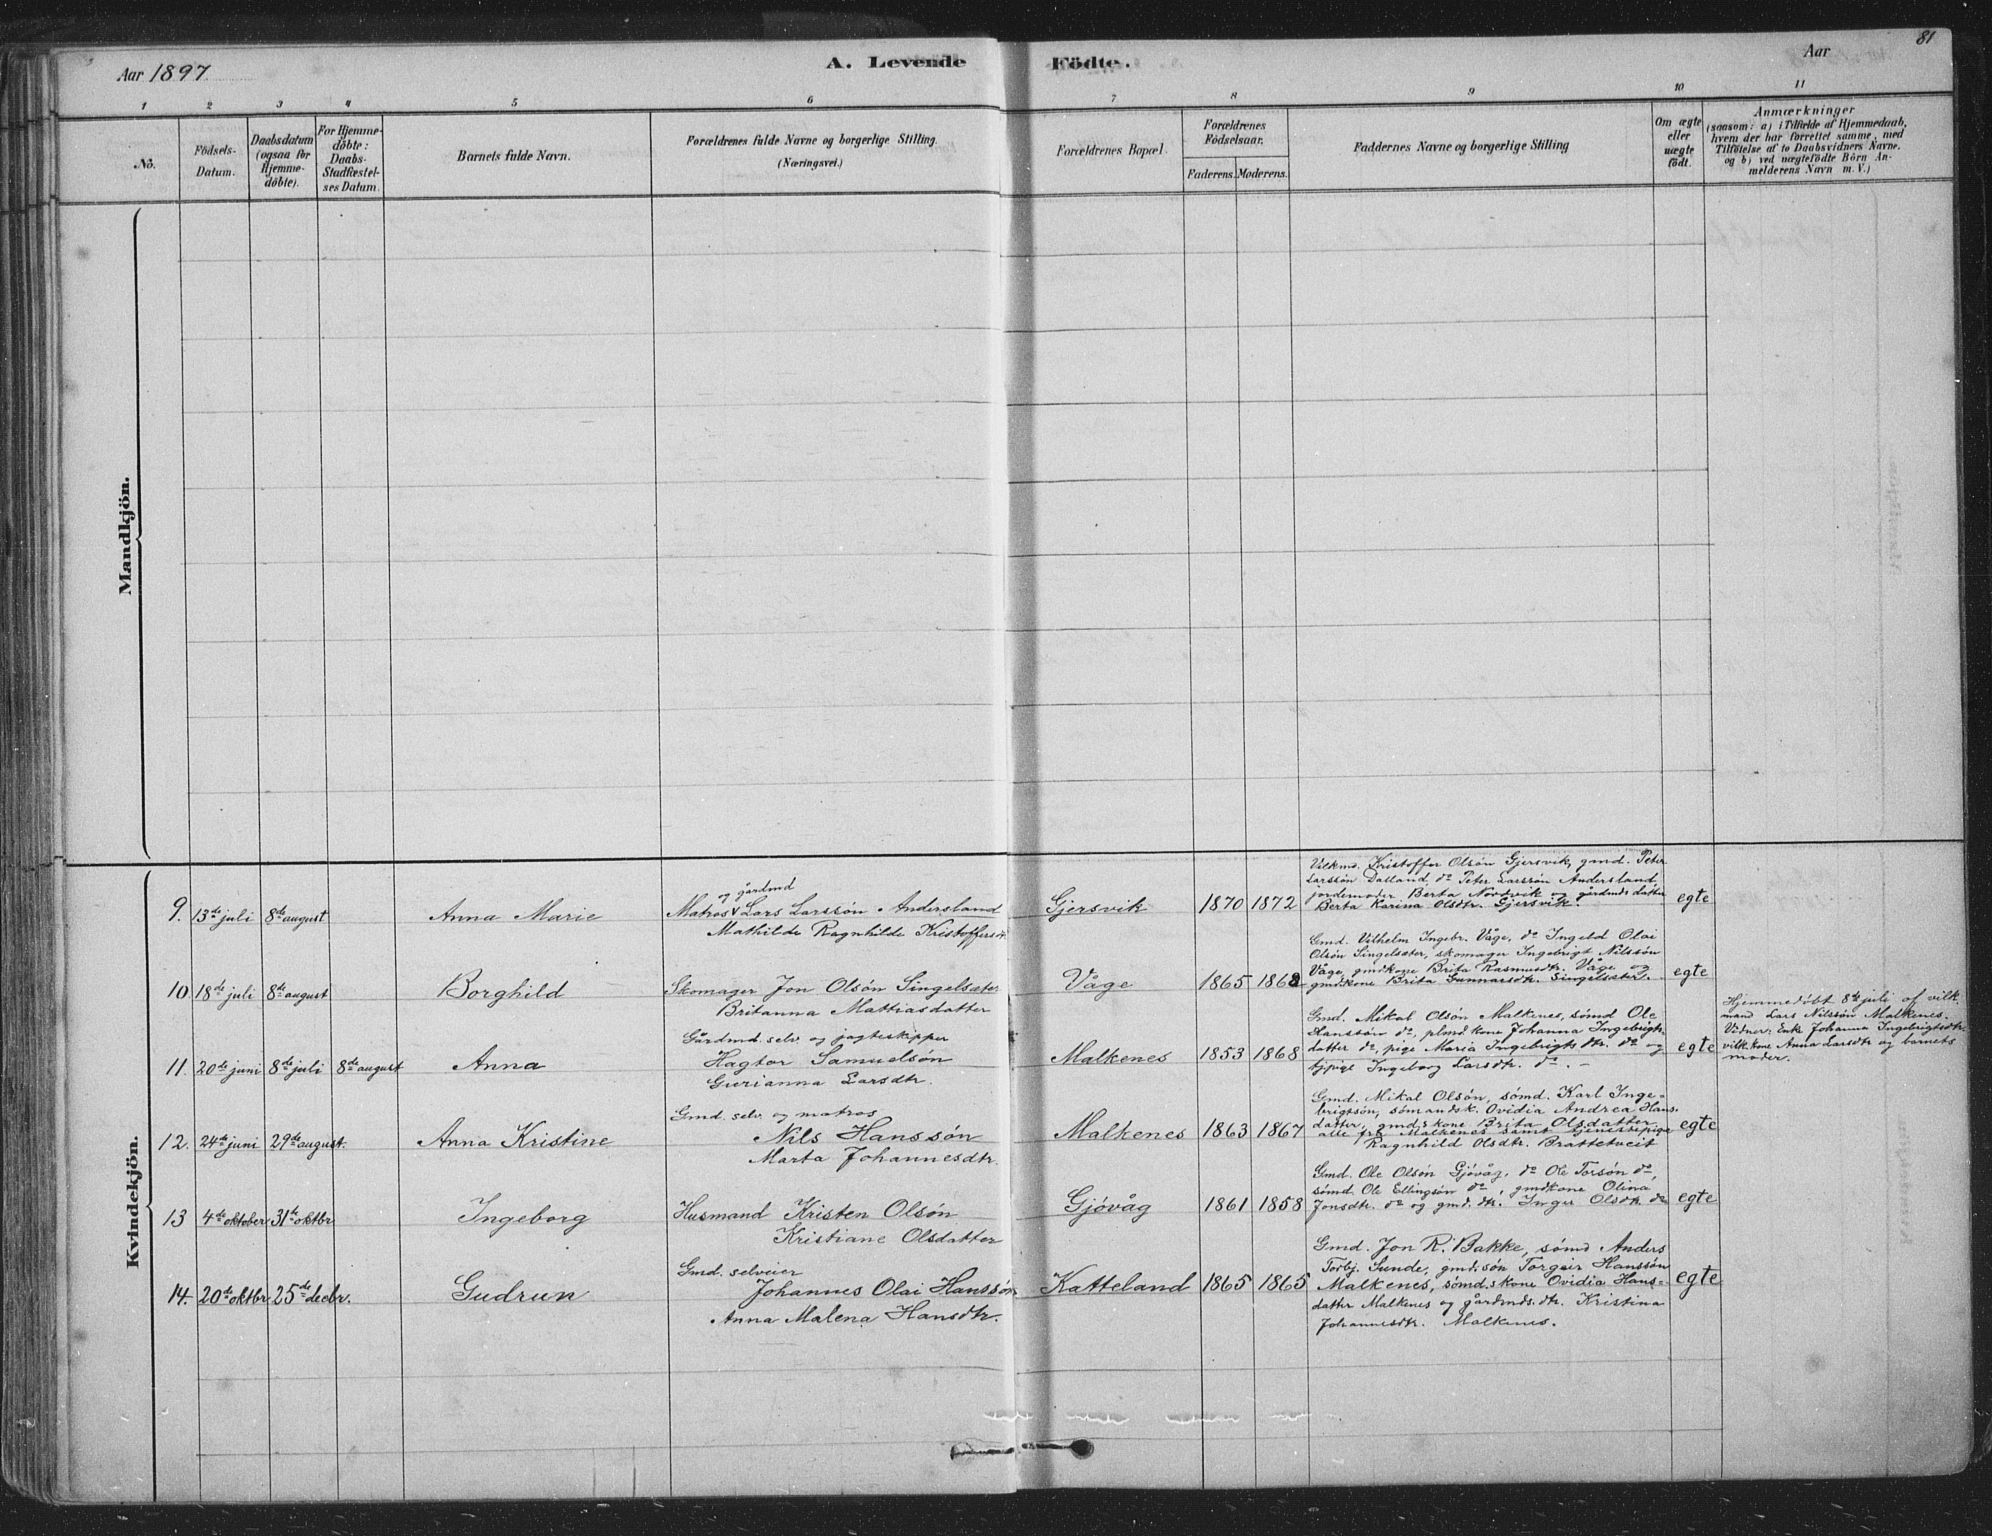 81
Aar 1897
A. Levende Födte.
Aar
1 2 3 4 5 6 7 8 9 10 11
No.
Födsels-
Datum.
Daabsdatum
(ogsaa for
Hjemme-
döbte).
For Hjemme-
döbte:
Daabs-
Stadfæstel-
ses Datum.
Barnets fulde Navn.
Forældrenes fulde Navne og borgerlige Stilling.
(Næringsvei.)
Forældrenes Bopæl.
Forældrenes
Födselsaar.
Faderens. Moderens.
Faddernes Navne og borgerlige Stilling
Om ægte
eller
uægte
födt.
Anmærkninger
(saasom: a) i Tilfælde af Hjemmedaab,
hvem der har forrettet samme, med
Tilföielse af to Daabsvidners Navne.
og b) ved uægtefödte Börn An-
melderens Navn m. V.)
Mandkjön.
Kvindekjön.
9. 13de juli 8de august
Anna Marie
og gårdmd
Matros Lars Larssön Andersland
Mathilde Ragnhilde Kristoffersdtr.
Gjersvik 1870 1872
Vilkmd. Kristoffer Olsön Gjersvik, gmd. Peter
Larssön Datland do Peter Larssön Andersland,
jordemoder Berta Nordvik og gårdmds datter
Berta Karina Olsdtr. Gjersvik.
egte
10 18de juli 8de august
Borghild
Skomager Jon Olsön Singelsæter
Britanna Mattiasdatter
Våge 1865 1868
Gmd. Vilhelm Ingebr. Våge, do Ingeld Olai
Olsön Singelsæter, skomager Ingebrigt Nilssön
Våge, gmdkone Brita Rasmusdtr. Våge og
gmdkone Brita Gunnarsdtr. Singelsæter.
egte
11. 20de juni 8de juli 8de august
Anna
Gårdmd. selv. og jagteskipper
Hagtor Samuelsön
Gurianna Larsdtr.
Malkenes 1853 1868
Gmd. Mikal Olsön Malkenes, sömd Ole
Hanssön do, plmd.kone Johanna Ingebrigts
datter do, pige Maria Ingebrigts dtr. do og
tjpige Ingeborg Larsdtr. do. -
egte
Hjemmedöbt 8de juli af vilk-
mand Lars Nilssön Malkenes.
Vidner: Enke Johanna Ingebrigtsdtr.
vilk.kone Anna Larsdtr og barnets
moder.
12. 24de juni 29de august.
Anna Kristine
Gmd. selv. og matros
Nils Hanssön
Marta Johannesdtr.
Malkenes 1863 1867
Gmd. Mikal Olsön, sömd. Karl Inge-
brigtsön, sömandsk. Ovidia Andrea Hans-
datter, gmds kone Brita Olsdatter
alle fra Malkenes samt tjenestepige
Ragnhild Olsdtr. Brattetveit
egte
13 4de oktober 31te oktbr
Ingeborg
Husmand Kristen Olsön
Kristiane Olsdatter
Gjövåg 1861 1858
Gmd. Ole Olsön Gjövåg, do Ole Torsön do,
sömd. Ole Ellingsön do, gmdkone Olina
Jonsdtr. do og gmd. dtr. Inger Olsdtr. do
egte
14. 20de oktbr. 25de decbr.
Gudrun
Gmd. selveier
Johannes Olai Hanssön
Anna Malena Hansdtr.
Katteland 1865 1865
Gmd. Jon R. Bakke, sömd Anders
Torbj. Sunde, gmd.sön Torgeir Hanssön
Malkenes, sömd.skone Ovidia Hans-
datter Malkenes og gårdmds. dtr. Kristina
Johannesdtr. Malkenes.
egte